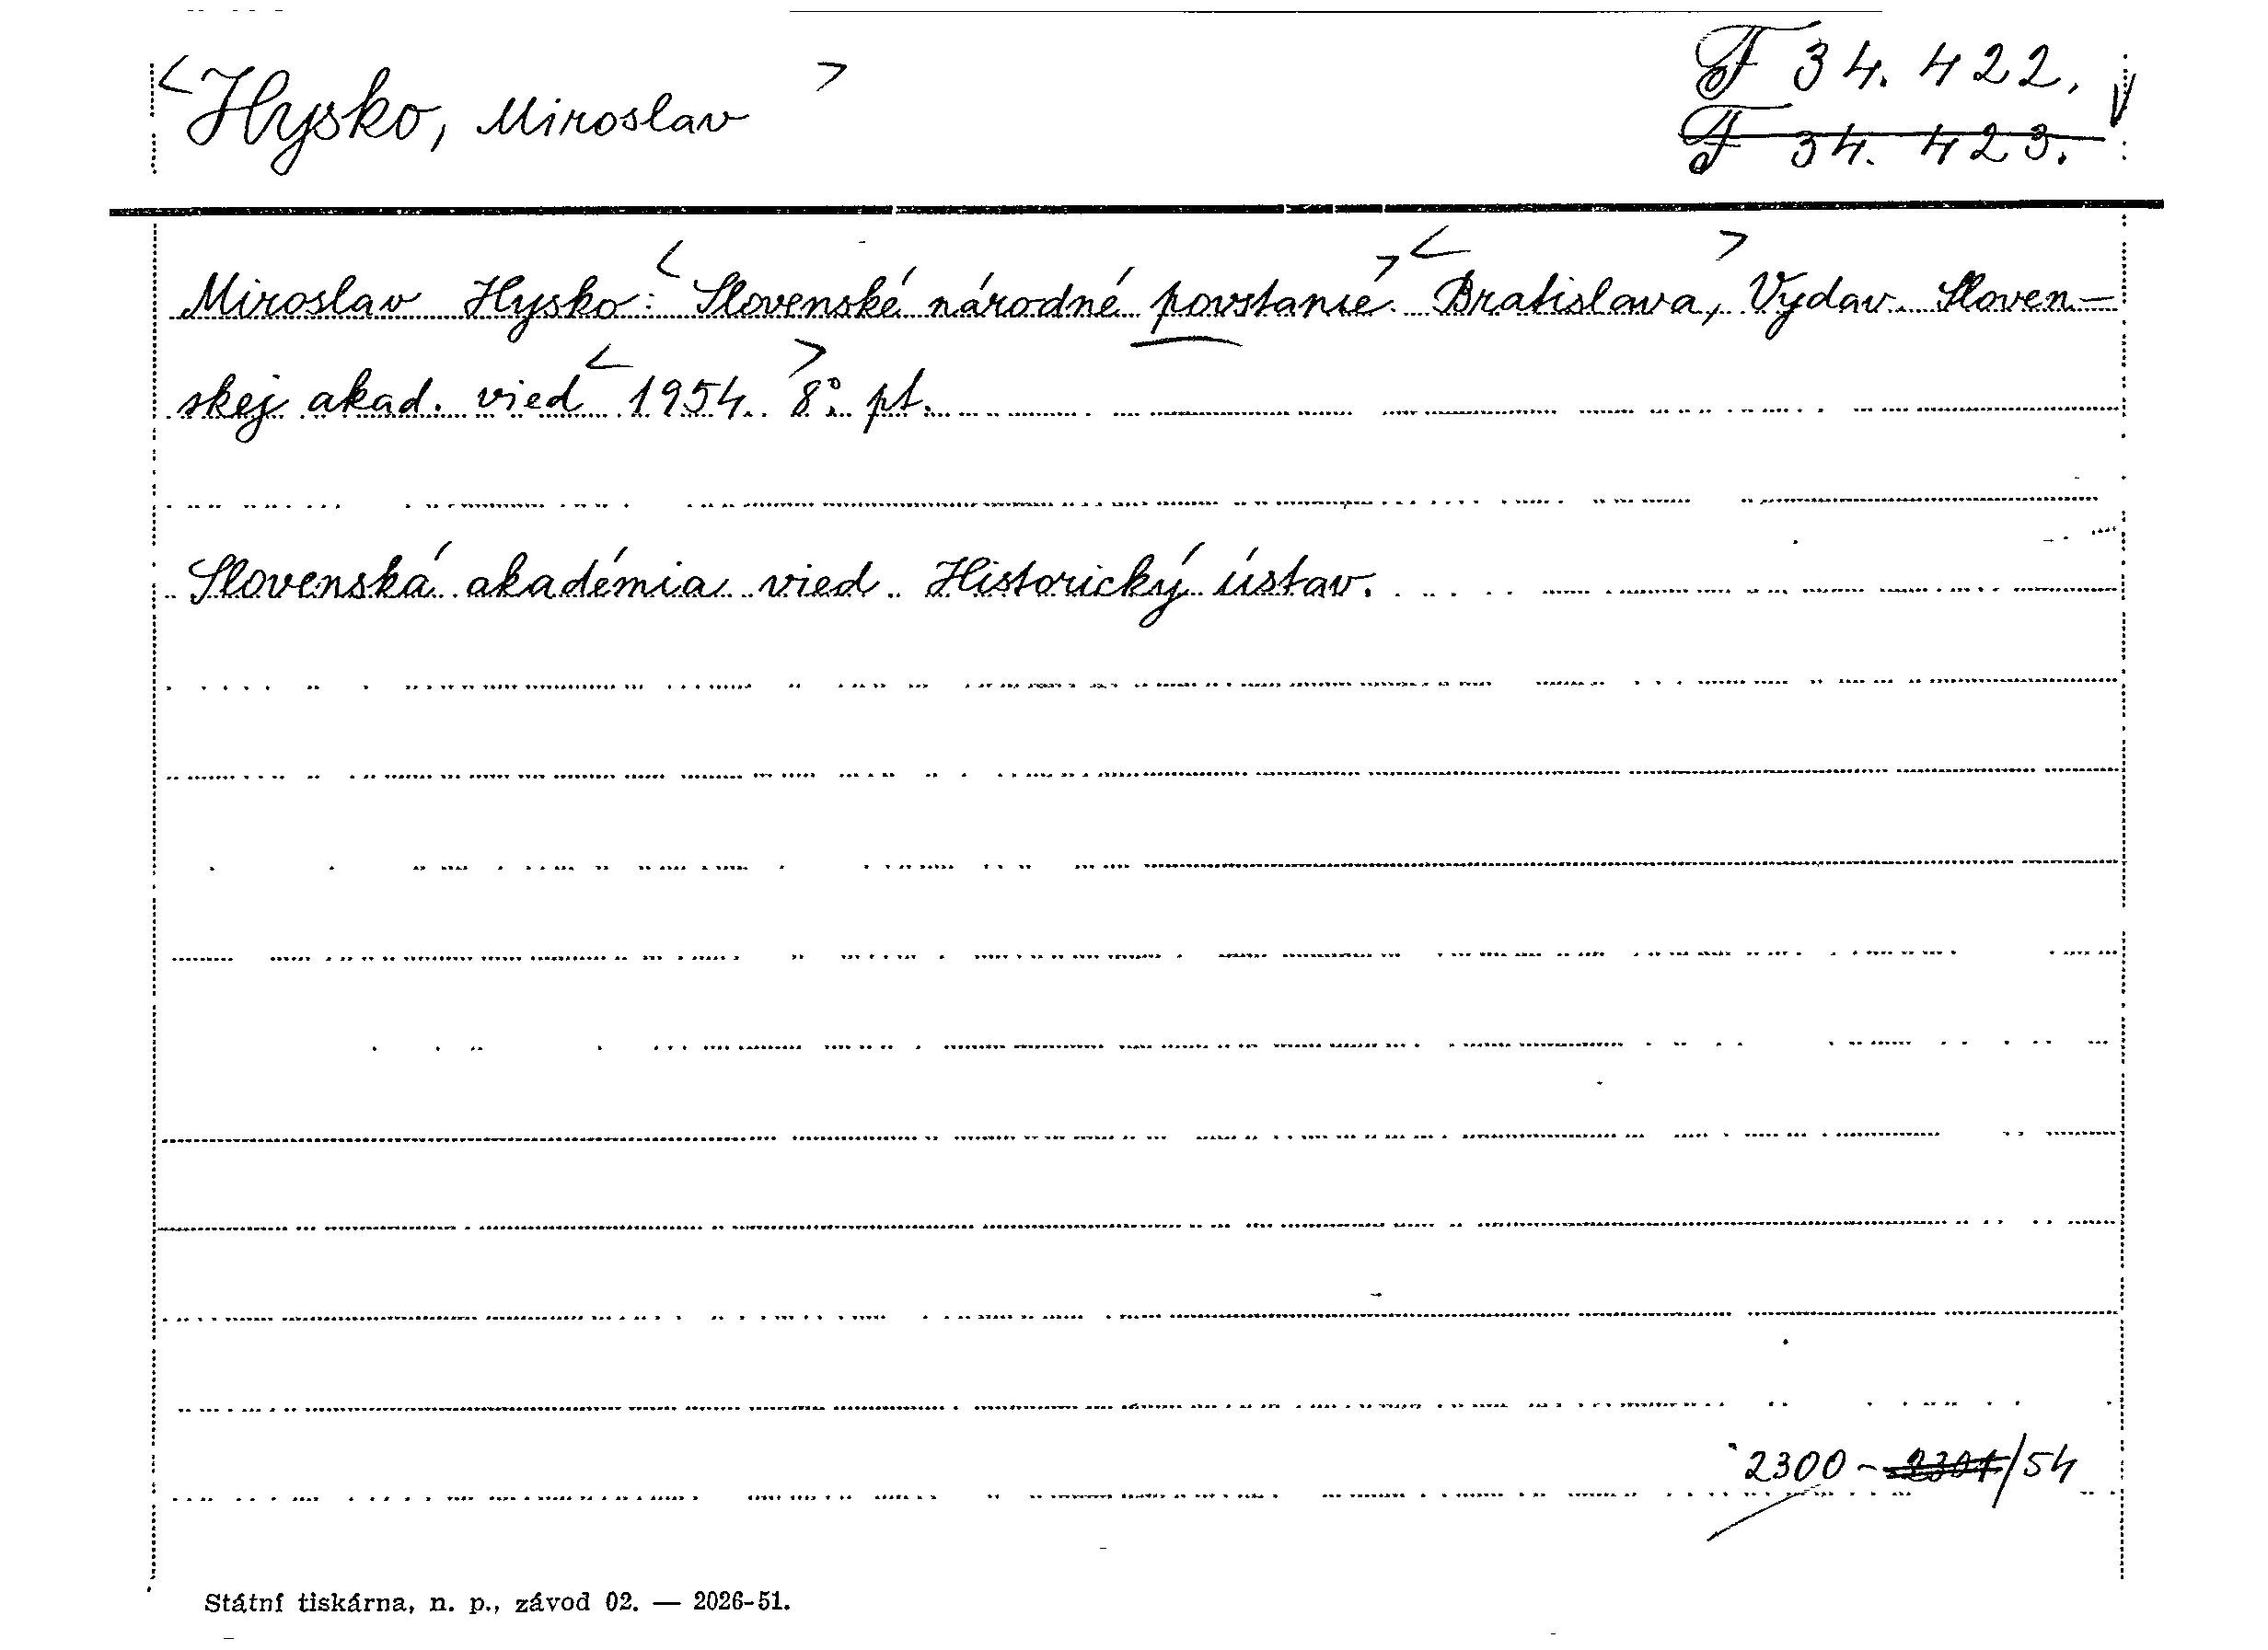 <Hysko, Miroslav>
F 34.422.
F 34.423.
Miroslav Hysko: <Slovenské národné povstanie.> <Bratislava,> Vydav. Sloven-
skej akad. vied <1954.> 8°. pt.
Slovenská akadémia vied. Historický ústav.
2300-2301/54
Státní tiskárna, n. p., závod 02. — 2026-51.